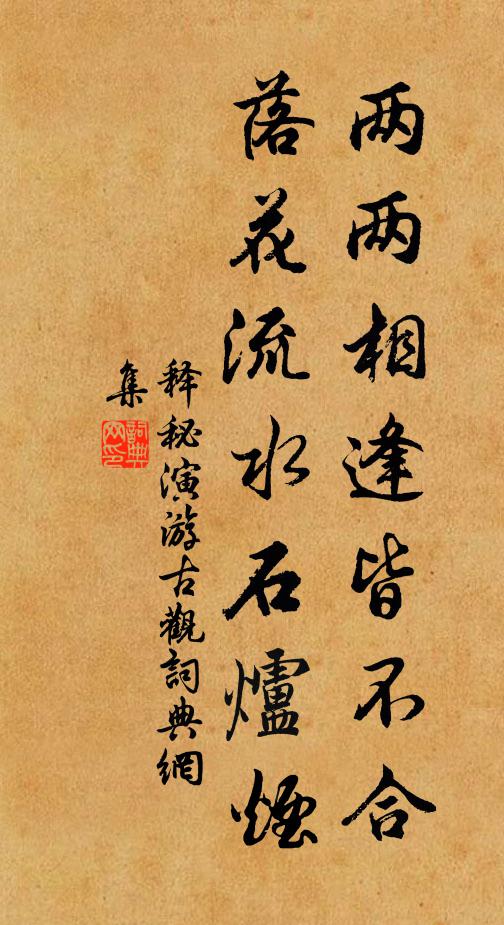 两两相逢皆不合
落花流水石爐煙
释秘演游古觀詞典網
集
詞典網印